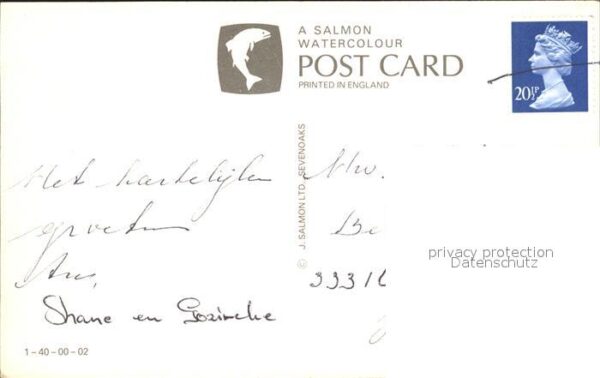 A SALMON
WATERCOLOUR
POST CARD
PRINTED IN ENGLAND
20½P
© J. SALMON LTD. SEVENOAKS
Met hartelijke
groeten
Mw.
Be
3331
privacy protection
Datenschutz
Shane en
1-40-00-02